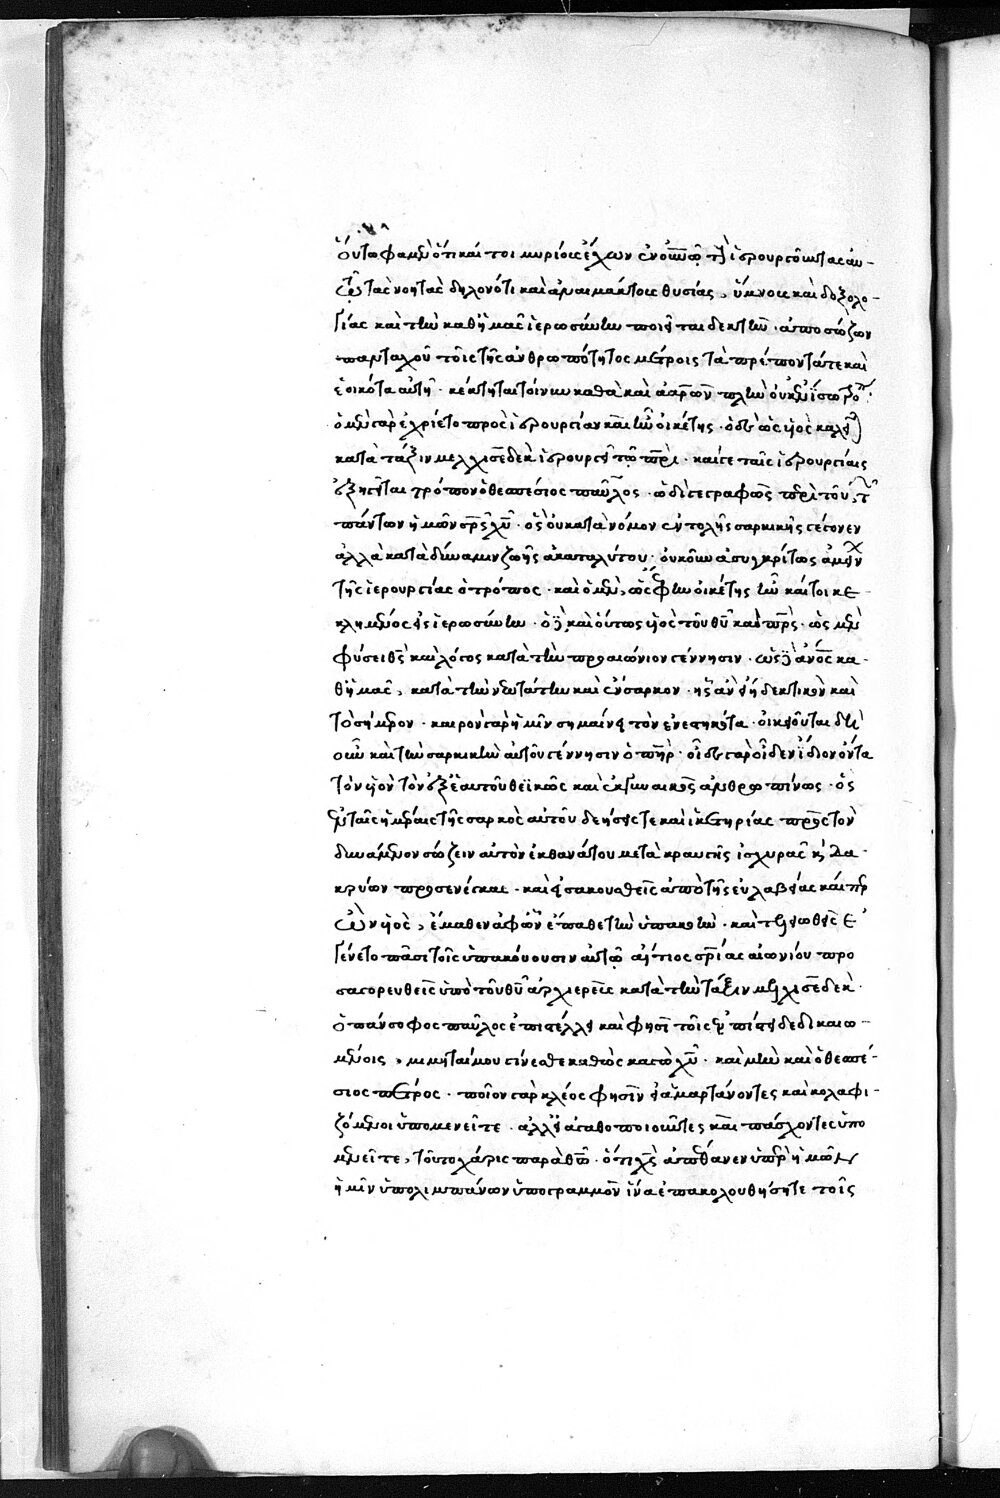 οὕτω φαμὲν ὅτι καί τοι μυρίους ἔχων ἐν οὐνῷ τοὺς ἱερουργοῦντας αυ-
τῷ τὰς νοητὰς δηλονότι καὶ ἀναιμάκτους θυσίας, ὕμνους καὶ δοξολο-
γίας καὶ τὴν καθ' ἡμᾶς ἱερωσύνην ποιεῖται δεκτὴν· ἀποσώζων
πανταχοῦ τοῖς τῆς ἀνθρωπότητος μέτροις τὰ πρέποντά τε καὶ
ἐοικότα αὐτῇ· κέκληται τοίνυν καθὰ καὶ ἀαρὼν πλὴν οὐκ ἐν ἴσῳ
ὁ μὲν γὰρ ἐχρίετο πρὸς ἱερουργίαν καὶ ἦν οἰκέτης· ὁ δὲ ὡς υἱὸς καλεῖ
κατὰ τάξιν μελχισεδὲκ ἱερουργεῖ τῷ πρι· καί γε ταῖς ἱερουργίαις
ἐξηγεῖται τρόπον ὁ θεσπέσιος παῦλος· ὡδί γε γραφὼς περὶ τοῦ
πάντων ἡμῶν σρς χυ· ὃς οὐ κατὰ νόμον ἐντολῆς σαρκικῆς γέγονεν
ἀλλὰ κατὰ δύναμιν ζωῆς ἀκαταλύτου· οὐκοῦν ἀσυγκρίτως ἀμείνων
τῆς ἱερουργίας ὁ τρόπος· καὶ ὁ μὲν, ὡς ἔφην οἰκέτης ἦν καί τοι κε-
κλημένος εἰς ἱερωσύνην· ὁ δὲ, καὶ οὕτως υἱὸς τοῦ θυ καὶ πρς· ὡς μὲν
φύσει θς καὶ λόγος κατὰ τὴν προαιώνιον γέννησιν· ὡς δὲ ανος κα-
θ' ἡμᾶς, κατὰ τὴν νεωτάτην καὶ ἔνσαρκον· ἧς ἂν εἴη δεκτικὸν καὶ
τὸ σήμερον· καιρὸν γὰρ ἡμῖν σημαίνει τὸν ἐνεστηκότα· οἰκειοῦται δὲ
οὖν καὶ τὴν σαρκικὴν αὐτοῦ γέννησιν ὁ πηρ· οἶδε γὰρ οἶδεν ἴδιον ὄντα
τὸν υἱὸν τὸν ἐξ ἑαυτοῦ θεϊκῶς καὶ ἐκ γυναικὸς ἀνθρωπίνως· ὃς
ἐν ταῖς ἡμέραις τῆς σαρκὸς αὐτοῦ δεήσεις τε καὶ ἱκετηρίας πρὸς τὸν
δυνάμενον σώζειν αὐτὸν ἐκ θανάτου μετὰ κραυγῆς ἰσχυρᾶς κ δα-
κρύων προσενέγκας· καὶ εἰσακουσθεὶς ἀπὸ τῆς εὐλαβείας καίπερ
ὢν υἱὸς, ἔμαθεν ἀφ' ὧν ἔπαθε τὴν ὑπακοὴν· καὶ τελειωθεὶς ἐ-
γένετο πᾶσι τοῖς ὑπακούουσιν αὐτῷ αἴτιος σρίας αἰωνίου προ
σαγορευθεὶς ὑπὸ τοῦ θυ ἀρχιερεὺς κατὰ τὴν τάξιν μελχισεδέκ·
ὁ πάνσοφος παῦλος ἐπιστέλλει καὶ φησὶ τοῖς ἐν πίστει δεδικαιω-
μένοις, μιμηταί μου γίνεσθε καθὼς κἀγὼ χυ· καὶ μὴν καὶ ὁ θεσπέ-
σιος πέτρος· ποῖον γὰρ κλέος φησὶν εἰ ἁμαρτάνοντες καὶ κολαφι-
ζόμενοι ὑπομενεῖτε· ἀλλ' εἰ ἀγαθοποιοῦντες καὶ πάσχοντες ὑπο
μενεῖτε, τοῦτο χάρις παρὰ θω· ὅτι χς ἀπέθανεν ὑπὲρ ἡμῶν
ἡμῖν ὑπολιμπάνων ὑπογραμμὸν ἵνα ἐπακολουθήσητε τοῖς